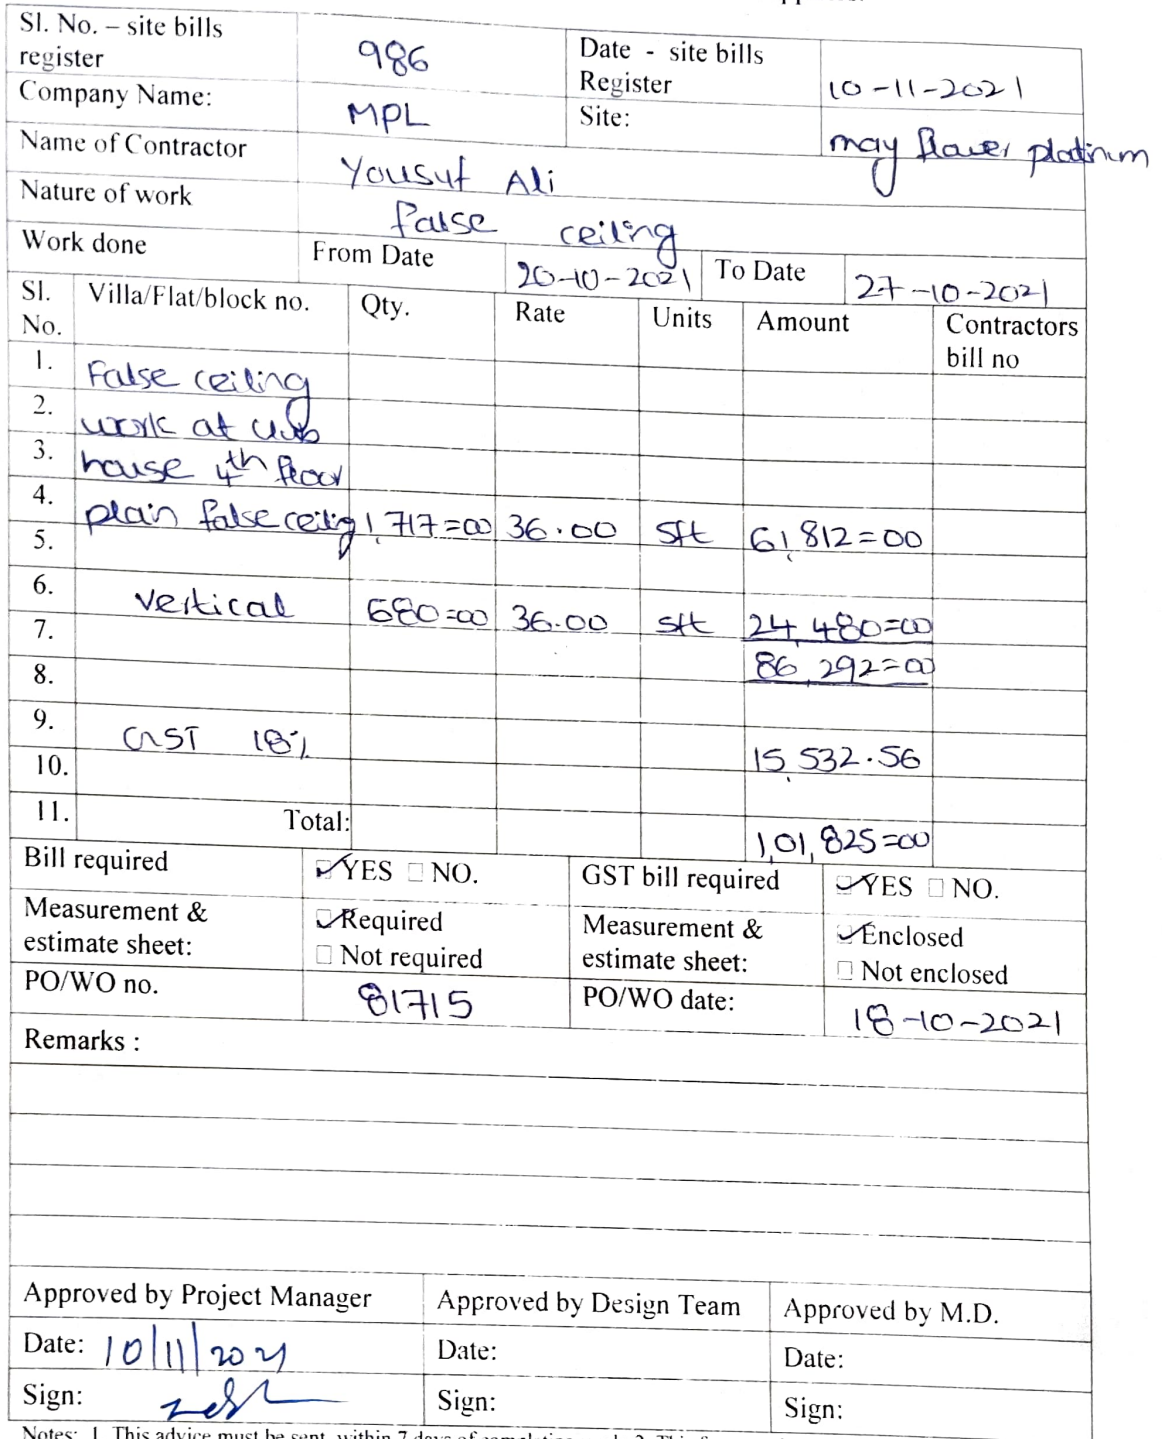 Sl. No. – site bills register 986 Date - site bills Register 10-11-2021
Company Name: MPL Site: may flower platinum
Name of Contractor Yousuf Ali
Nature of work false ceiling
Work done From Date 20-10-2021 To Date 27-10-2021
Sl. No. Villa/Flat/block no. Qty. Rate Units Amount Contractors bill no
1. False ceiling
2. work at club
3. house 4th floor
4. plain false ceilig 1,717=00 36.00 sft 61,812=00
5.
6. vertical 680=00 36.00 sft 24,480=00
7. 86,292=00
8.
9. GST 18% 15,532.56
10.
11. Total: 1,01,825=00
Bill required ☑YES ☐NO. GST bill required ☑YES ☐NO.
Measurement & estimate sheet: ☑Required ☐Not required Measurement & estimate sheet: ☑Enclosed ☐Not enclosed
PO/WO no. 81715 PO/WO date: 18-10-2021
Remarks :
Approved by Project Manager Approved by Design Team Approved by M.D.
Date: 10/11/2021 Date: Date:
Sign: Sign: Sign:
Notes: 1. This advice must be sent within 7 days of